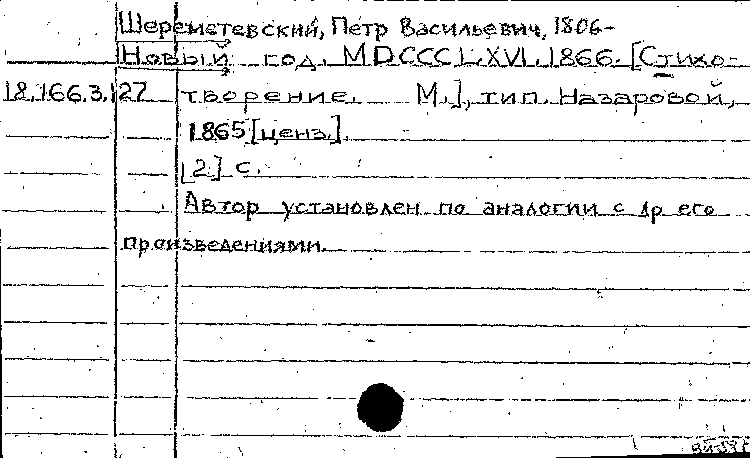 Шереметевский, Петр Васильевич, 1806-
Новый год. MDCCCLXVI. 1866. [Стихо-
18.166.3.127 творение. М.], тип. Назаровой,
1865 [ценз.].
[2] с.
Автор установлен по аналогии с др его
произведениями.